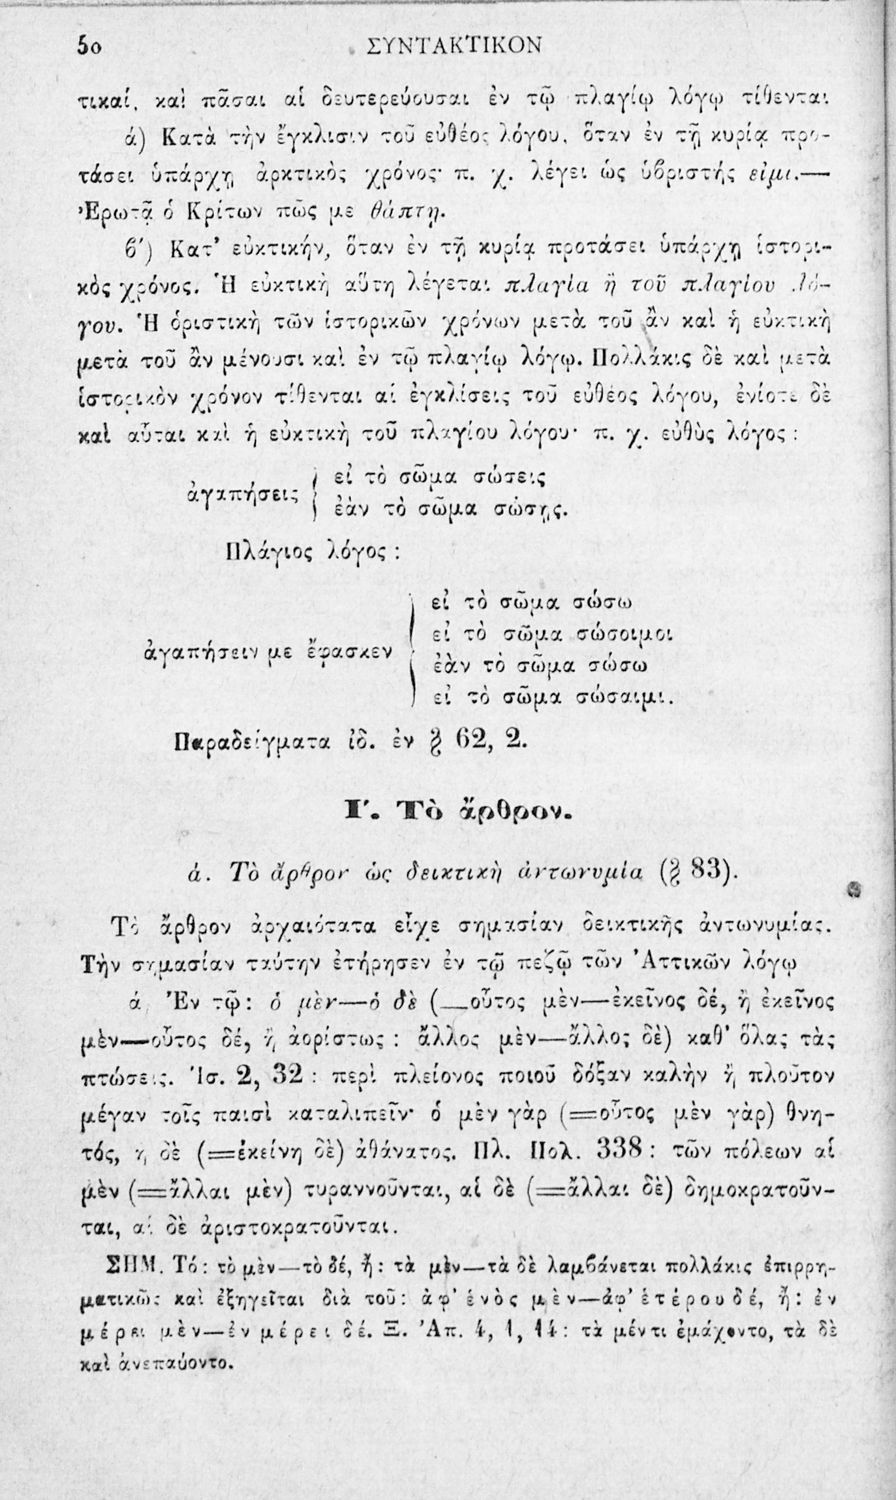 50 ΣΥΝΤΑΚΤΙΚΟΝ
τικαί, καὶ πᾶσαι αἱ δευτερεύουσαι ἐν τῷ πλαγίῳ λόγῳ τίθενται
ά) Κατὰ τὴν ἔγκλισιν τοῦ εὐθέος λόγου, ὅταν ἐν τῇ κυρίᾳ προ-
τάσει ὑπάρχῃ ἀρκτικὸς χρόνος· π. χ. λέγει ὡς ὑβριστής εἰμι.—
Ἐρωτᾷ ὁ Κρίτων πῶς με θάπτῃ.
ϐ′) Κατ’ εὐκτικήν, ὅταν ἐν τῇ κυρίᾳ προτάσει ὑπάρχῃ ἱστορι-
κὸς χρόνος. Ἡ εὐκτικὴ αὕτη λέγεται πλαγία ἢ τοῦ πλαγίου λό-
γου. Ἡ ὁριστικὴ τῶν ἱστορικῶν χρόνων μετὰ τοῦ ἂν καὶ ἡ εὐκτικὴ
μετὰ τοῦ ἂν μένουσι καὶ ἐν τῷ πλαγίῳ λόγῳ. Πολλάκις δὲ καὶ μετὰ
ἱστορικὸν χρόνον τίθενται αἱ ἐγκλίσεις τοῦ εὐθέος λόγου, ἐνίοτε δὲ
καὶ αὗται καὶ ἡ εὐκτικὴ τοῦ πλαγίου λόγου· π. χ. εὐθὺς λόγος :
εἰ τὸ σῶμα σώσεις
ἀγαπήσεις
ἐὰν τὸ σῶμα σώσῃς.
Πλάγιος λόγος :
εἰ τὸ σῶμα σώσω
εἰ τὸ σῶμα σώσοιμοι
ἀγαπήσειν με ἔφασκεν
ἐὰν τὸ σῶμα σώσω
εἰ τὸ σῶμα σώσαιμι.
Παραδείγματα ἰδ. ἐν § 62, 2.
Ι′. Τὸ ἄρθρον.
ά. Τὸ ἄρθρον ὡς δεικτικὴ ἀντωνυμία (§ 83).
Τὸ ἄρθρον ἀρχαιότατα εἶχε σημασίαν δεικτικῆς ἀντωνυμίας.
Τὴν σημασίαν ταύτην ἐτήρησεν ἐν τῷ πεζῷ τῶν Ἀττικῶν λόγῳ
ά Ἐν τῷ: ὁ μὲν—ὁ δὲ (=οὗτος μὲν—ἐκεῖνος δέ, ἢ ἐκεῖνος
μὲν—οὗτος δέ, ἢ ἀορίστως : ἄλλος μὲν—ἄλλος δὲ) καθ’ ὅλας τὰς
πτώσεις. Ἰσ. 2, 32 : περὶ πλείονος ποιοῦ δόξαν καλὴν ἢ πλοῦτον
μέγαν τοῖς παισὶ καταλιπεῖν· ὁ μὲν γὰρ (=οὗτος μὲν γὰρ) θνη-
τός, ἡ δὲ (=ἐκείνη δὲ) ἀθάνατος. Πλ. Πολ. 338 : τῶν πόλεων αἱ
μὲν (=ἄλλαι μὲν) τυραννοῦνται, αἱ δὲ (=ἄλλαι δὲ) δημοκρατοῦν-
ται, αἱ δὲ ἀριστοκρατοῦνται.
ΣΗΜ. Τό: τὸ μὲν—τὸ δέ, ἢ: τὰ μὲν—τὰ δὲ λαμβάνεται πολλάκις ἐπιρρη-
ματικῶς καὶ ἐξηγεῖται διὰ τοῦ: ἀφ’ ἑνὸς μὲν—ἀφ’ ἑτέρου δέ, ἢ: ἐν
μέρει μὲν—ἐν μέρει δέ. Ξ. Ἀπ. 4, 1, 14: τὰ μέν τι ἐμάχοντο, τὰ δὲ
καὶ ἀνεπαύοντο.